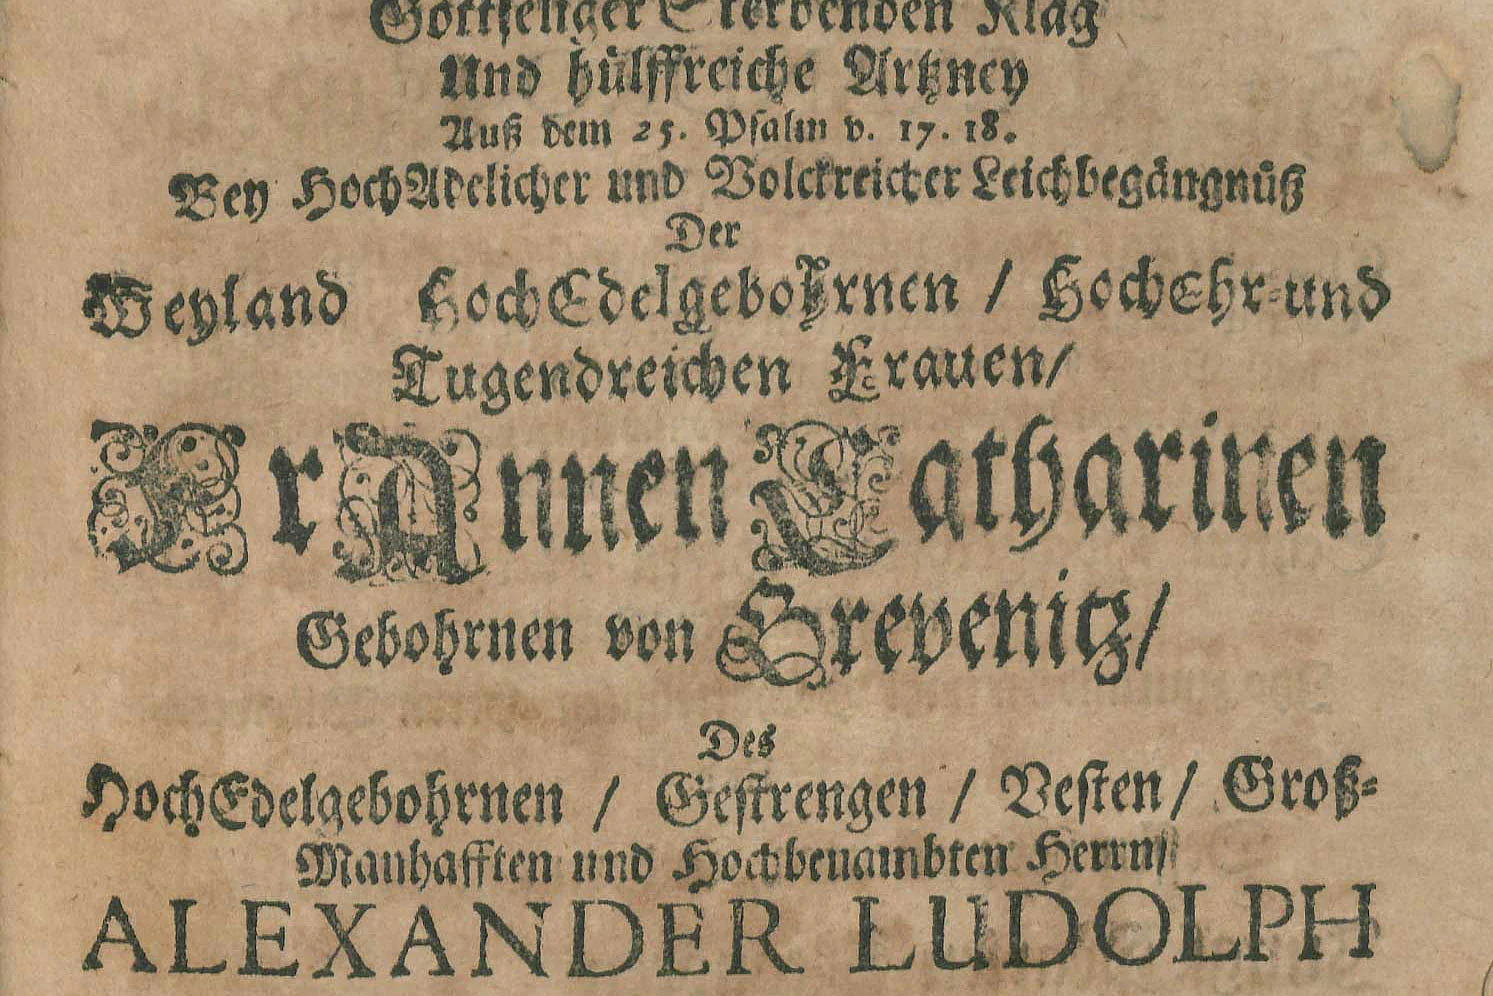 Gottseliger Sterbenden Klag
Und hülffreiche Artzney
Auß dem 25. Psalm v. 17. 18.
Bey HochAdelicher und Volckreicher Leichbegängnüß
Der
Weyland HochEdelgebohrnen / HochEhr-und
Tugendreichen Frauen/
Fr Annen Catharinen
Gebohrnen von Grevenitz/
Des
HochEdelgebohrnen / Gestrengen / Vesten / Groß-
Manhafften und Hochbenambten Herrn/
ALEXANDER LUDOLPH